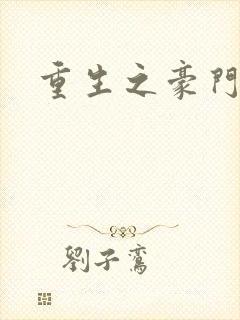 重生之豪門
劉子鸞